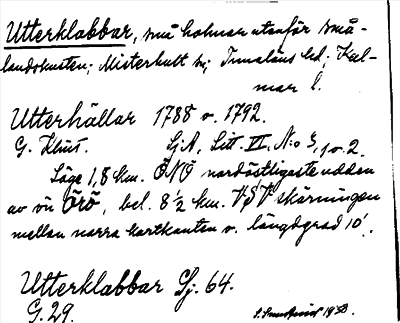 Utterklabbar, små holmar utanför små-
landskusten; Misterhult sn; Tunaläns hd; Kal-
mar l.
Utterhällar 1788 o. 1792.
G. Klint. Sj.A, Litt. VI, N:o 3, 1 o. 2.
Läge 1,8 km. ÖNÖ nordöstligaste udden
av ön Örö, bel. 8 1/2 km. VSV skärningen
mellan norra kartkanten o. längdgrad 10'.
Utterklabbar Sj. 64.
G. 29.